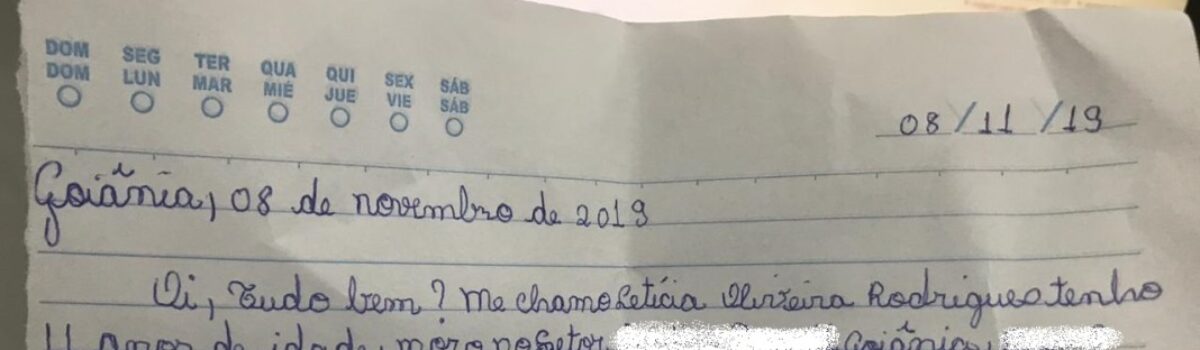 DOM SEG TER QUA QUI SEX SÁB
DOM LUN MAR MIÉ JUE VIE SÁB
08/11/19
Goiânia, 08 de novembro de 2019
Oi, Tudo bem? Me chamo Letícia Oliveira Rodrigues tenho
11 anos de idade, moro no Setor Goiânia,